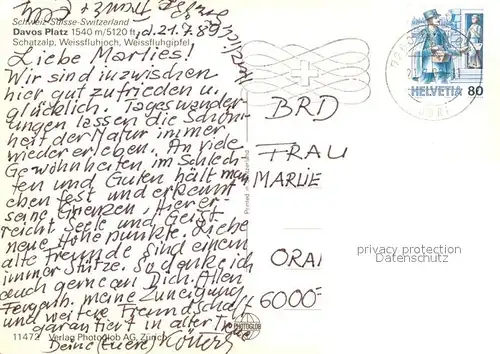 Schweiz-Suisse-Switzerland
Davos Platz 1540 m/5120 ft
Schatzalp, Weissfluhjoch, Weissfluhgipfel
d. 21.7.89
Liebe Marlies!
Wir sind inzwischen
hier gut zufrieden u.
glücklich. Tageswander-
ungen lassen die Schön-
heit der Natur immer
wieder erleben. An viele
Gewohnheiten im Schlech-
ten und Guten hält man
eben fest und erkennt
seine Grenzen. Hier er-
reicht Seele und Geist
neue Höhepunkte. Liebe
alte Freunde sind einem
immer Stütze. So denke ich
auch gerne an Dich. Allen
meine Zuneigung
und weitere Freundschaft
garantiert in alter Treue
Deine (Eure)
11472 Verlag Photoglob AG, Zürich
Printed in Switzerland
PHOTOGLOB
HELVETIA 80
BRD
FRAU
MARLIE
ORAI
6000-
privacy protection
Datenschutz